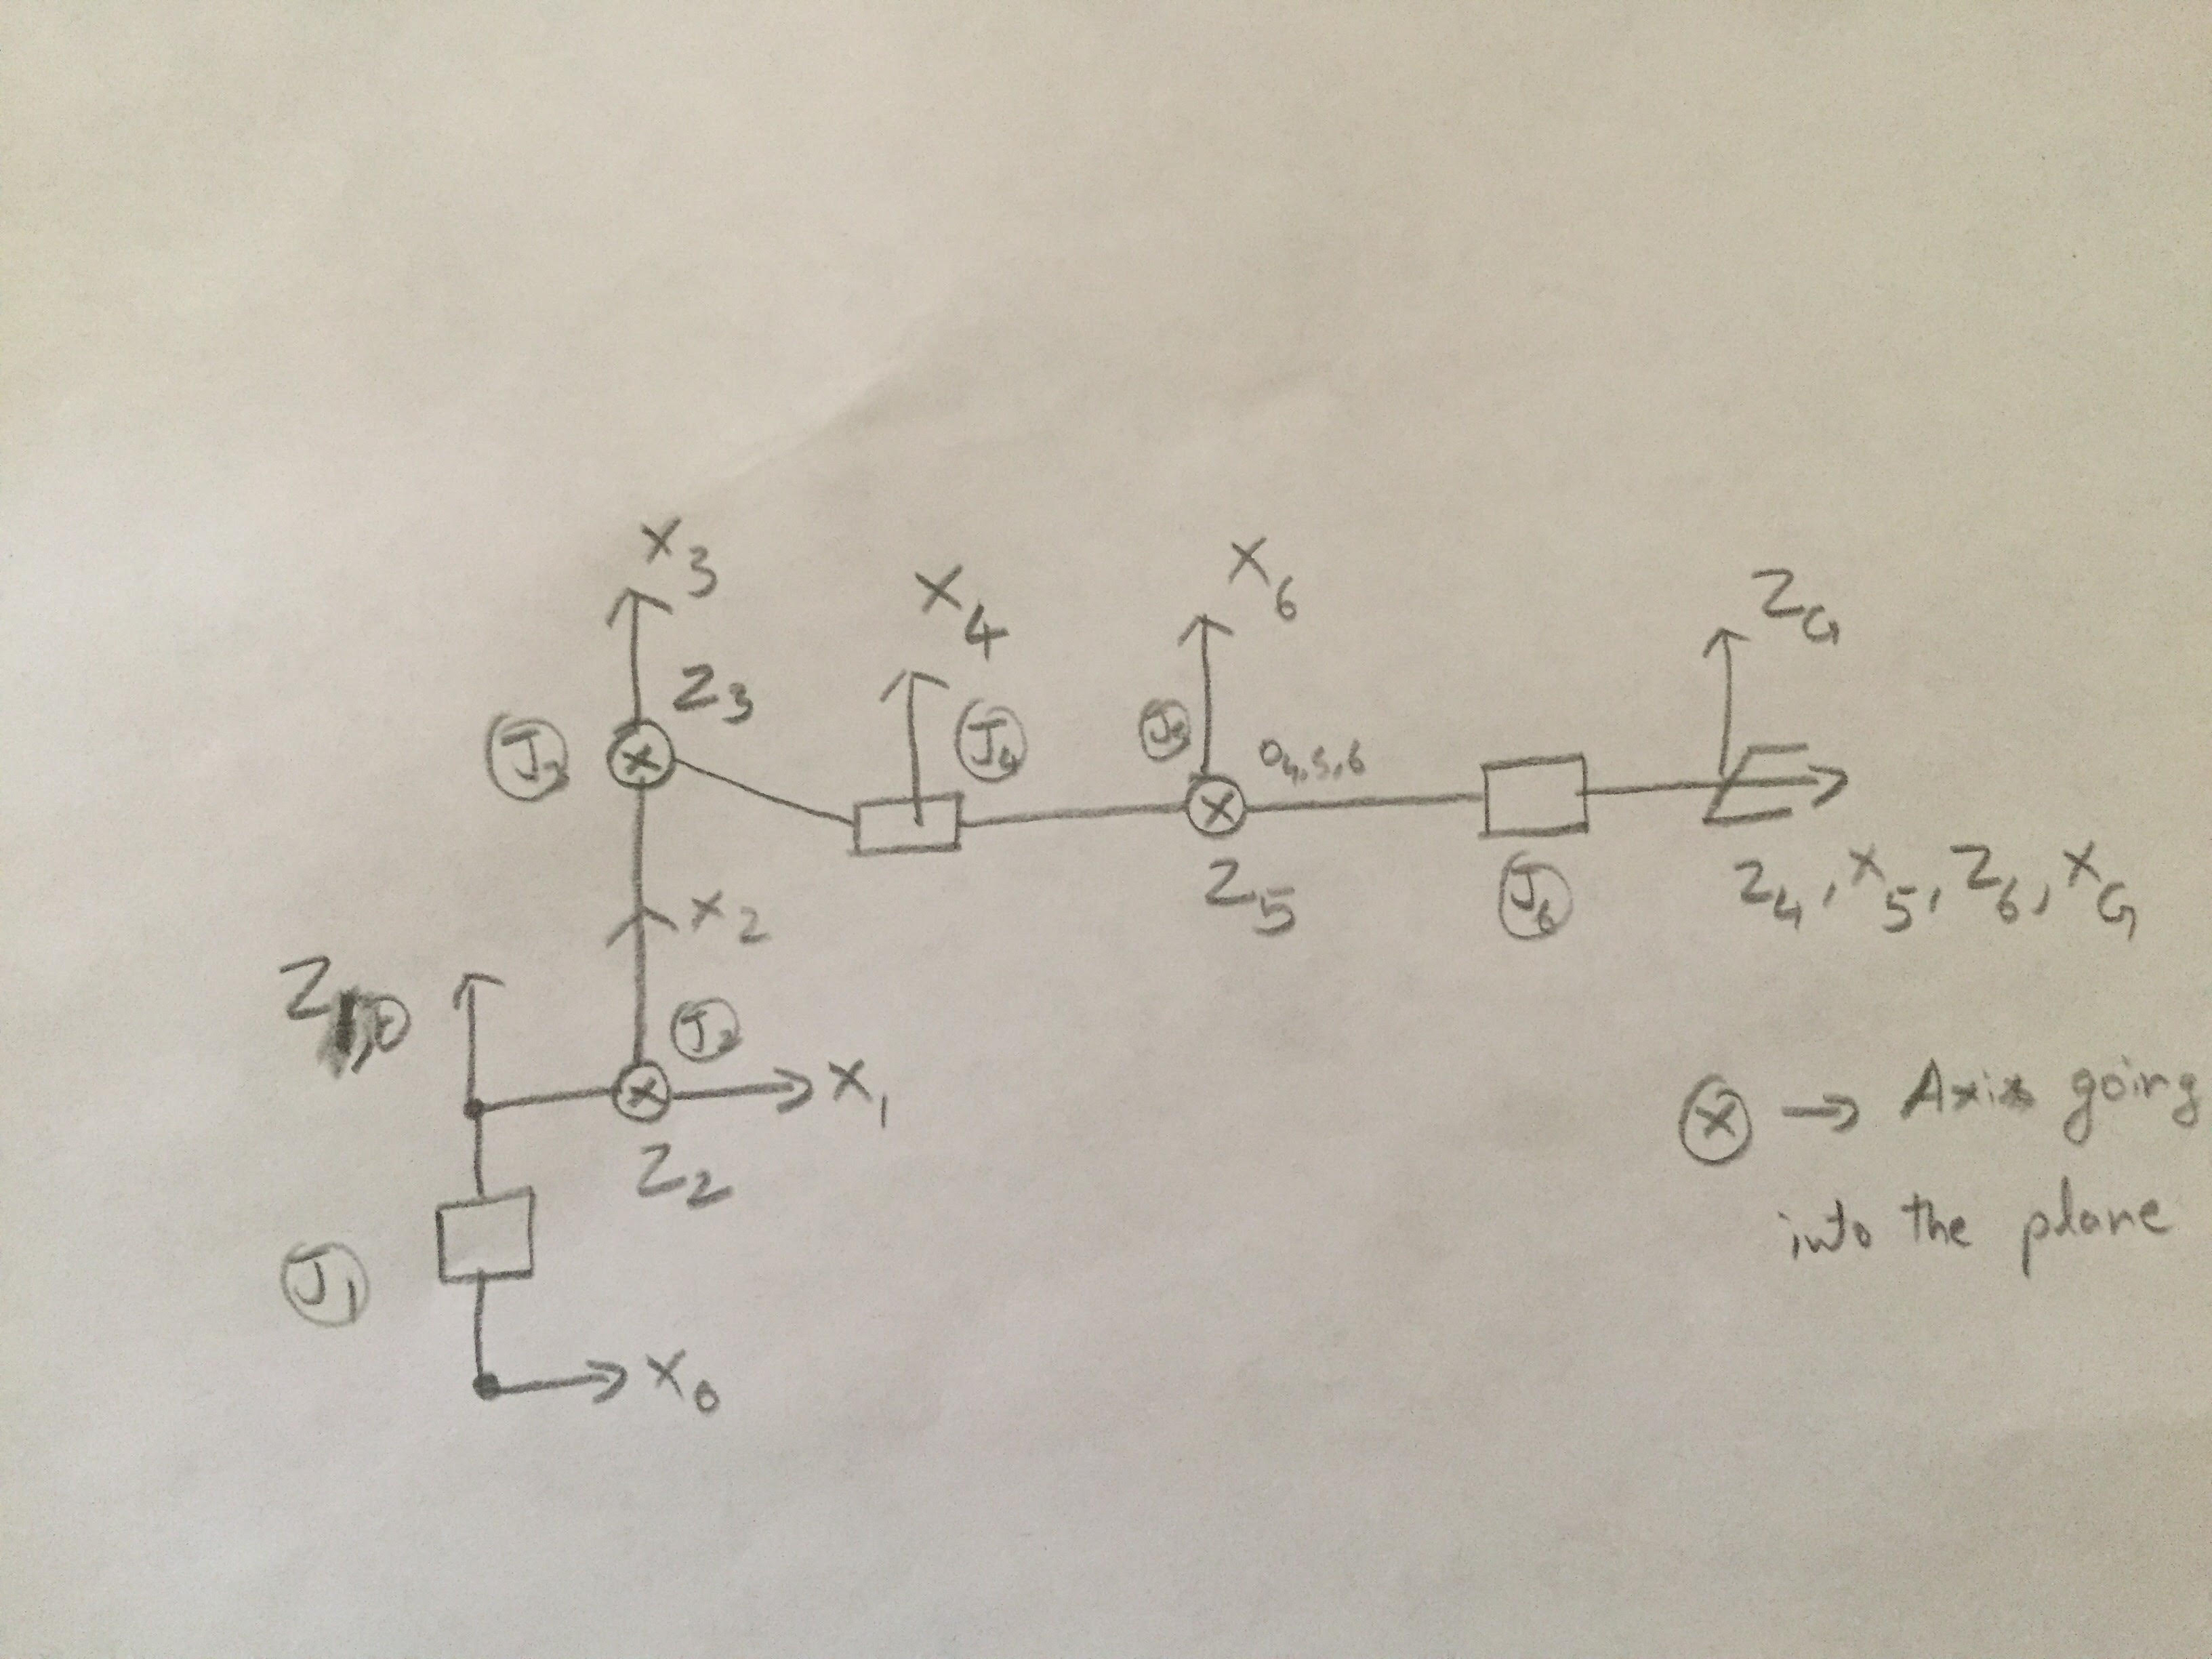 X3
X4
X6
ZG
Z3
J3
J4
J5
O4,5,6
Z5
J6
Z4, X5, Z6, XG
X2
Z1,0
J2
X1
Z2
X → Axis going
into the plane
J1
X0